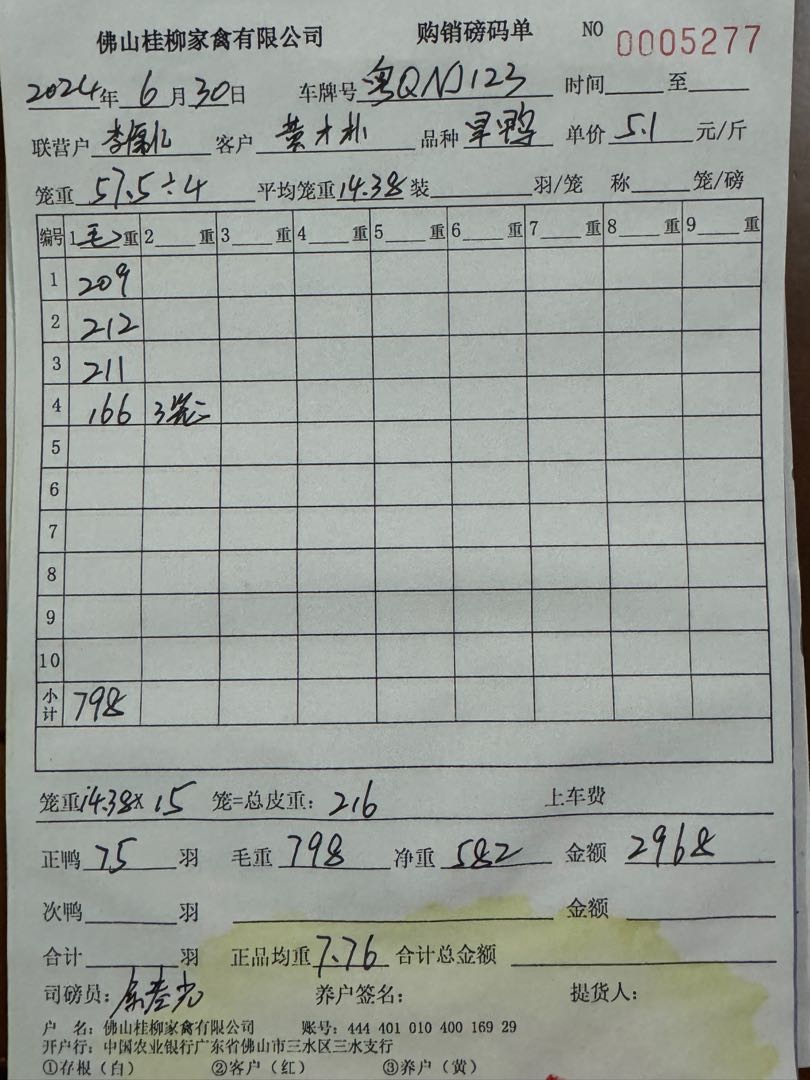 佛山桂柳家禽有限公司 购销磅码单 NO 0005277
2024年6月30日 车牌号粤QNJ123 时间 至
联营户 客户 黄才 品种 旱鸭 单价 5.1 元/斤
笼重 57.5÷4 平均笼重14.38装 羽/笼 称 笼/磅
编号 1毛重 2 重 3 重 4 重 5 重 6 重 7 重 8 重 9 重
1 209
2 212
3 211
4 166 3笼
5
6
7
8
9
10
小计 798
笼重14.38×15 笼=总皮重: 216 上车费
正鸭 75 羽 毛重 798 净重 582 金额 2968
次鸭 羽 金额
合计 羽 正品均重7.76 合计总金额
司磅员: 养户签名: 提货人:
户 名: 佛山桂柳家禽有限公司 账号: 444 401 010 400 169 29
开户行: 中国农业银行广东省佛山市三水区三水支行
①存根(白) ②客户(红) ③养户(黄)